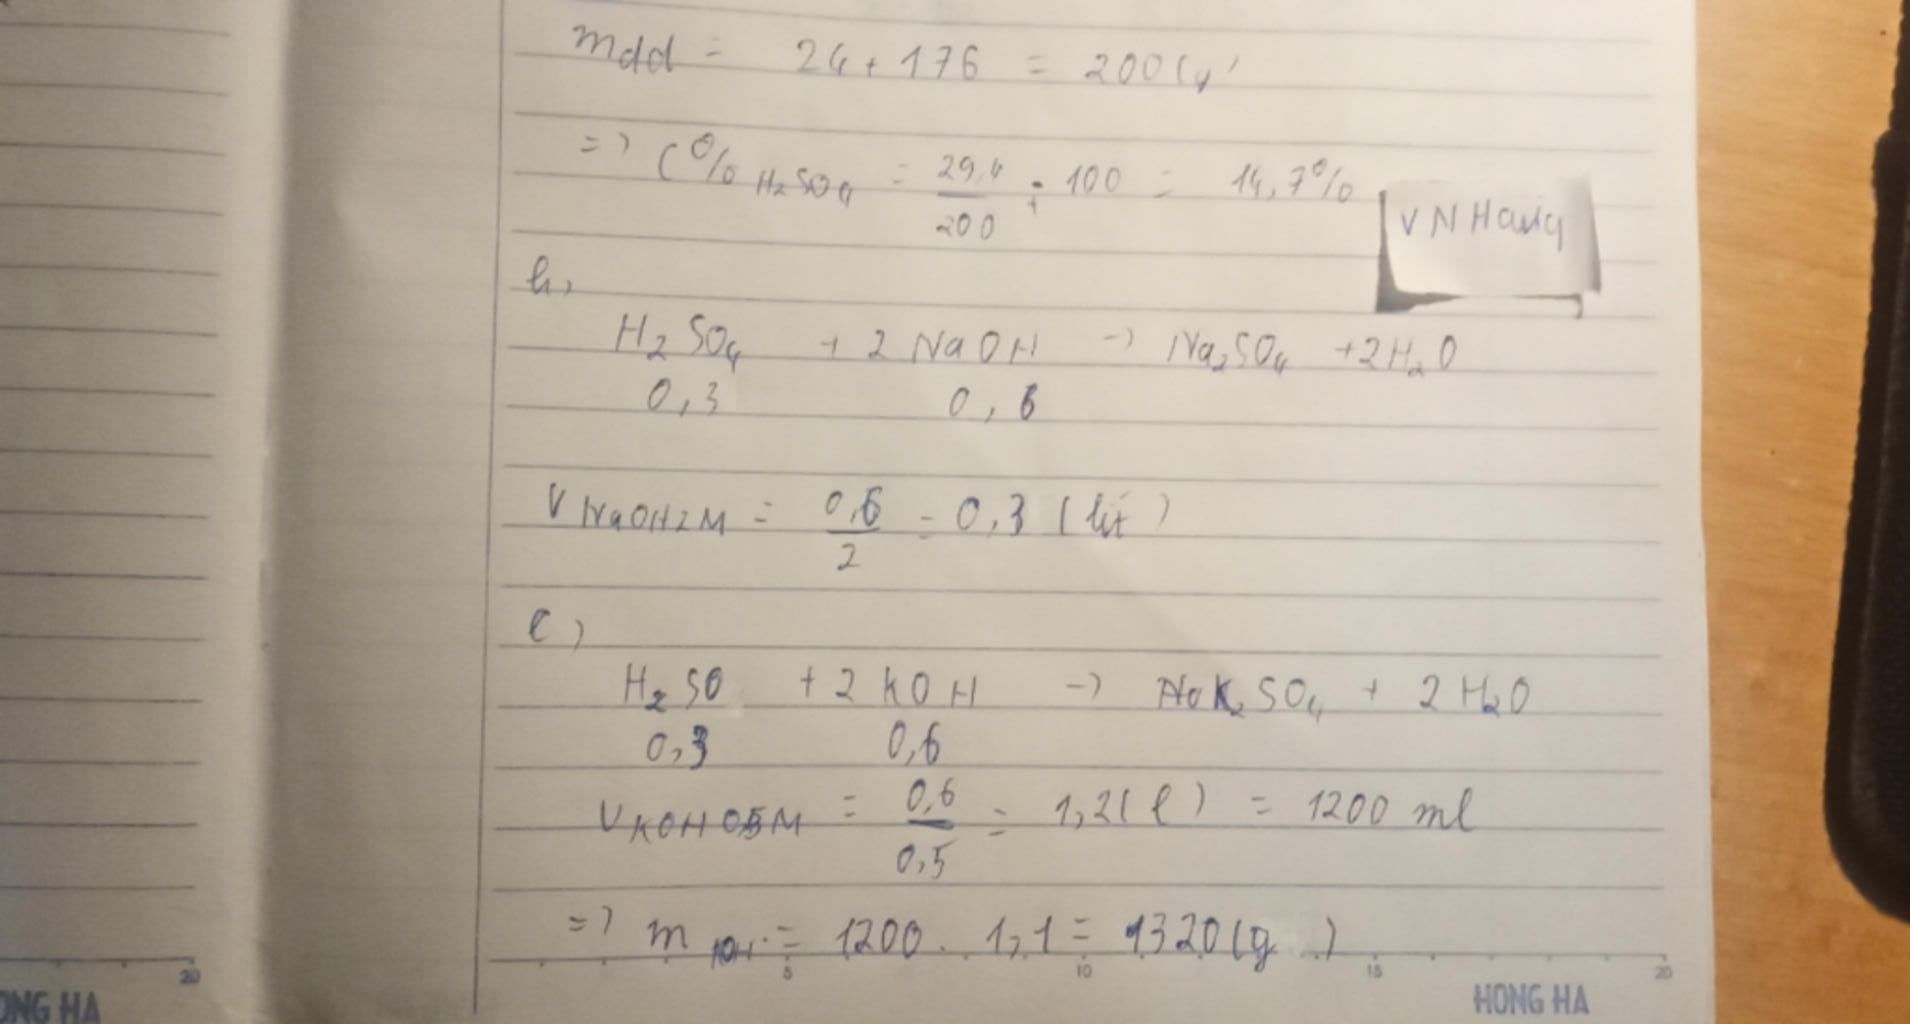 mdd = 24 + 176 = 200 (g)
=> C% H2SO4 = 29,4 / 200 . 100 = 14,7%
VN Hằng
b,
H2SO4 + 2 NaOH -> Na2SO4 + 2H2O
0,3 0,6
V NaOH 2M = 0,6 / 2 = 0,3 (lít)
c)
H2SO + 2 KOH -> K2SO4 + 2 H2O
0,3 0,6
V KOH 0,5M = 0,6 / 0,5 = 1,2 (l) = 1200 ml
=> m = 1200 . 1,1 = 1320 (g)
20 5 10 15 20
ONG HA HONG HA